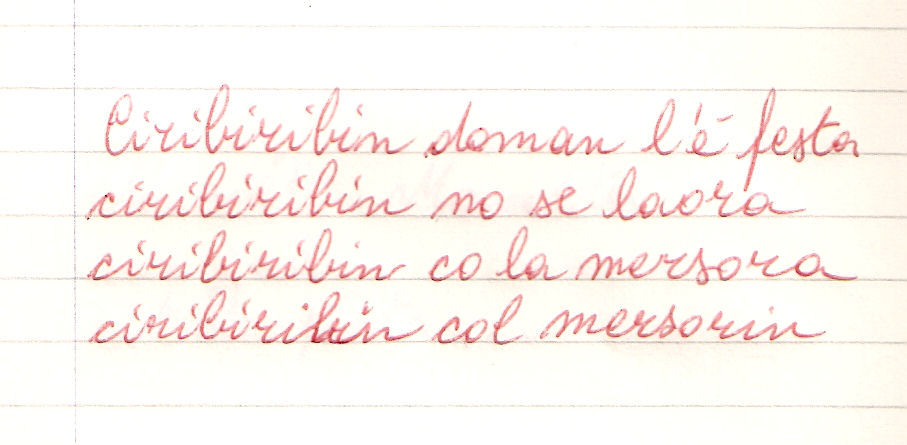 Ciribiribin doman l'é festa
ciribiribin no se laora
ciribiribin co la mersora
ciribiribin col mersorin